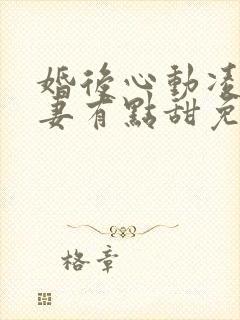 婚後心動凌
妻有點甜免
格章